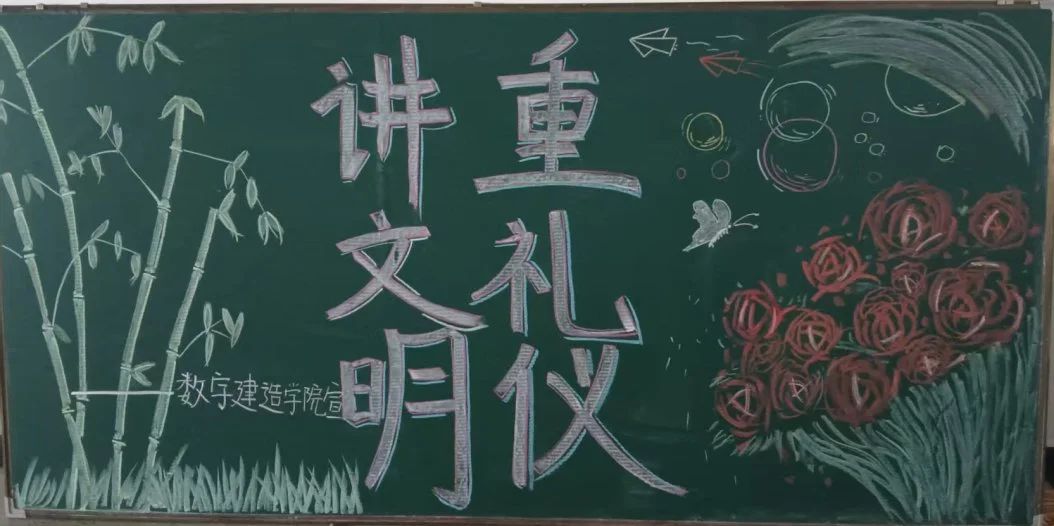 讲文明
重礼仪
数字建造学院宣